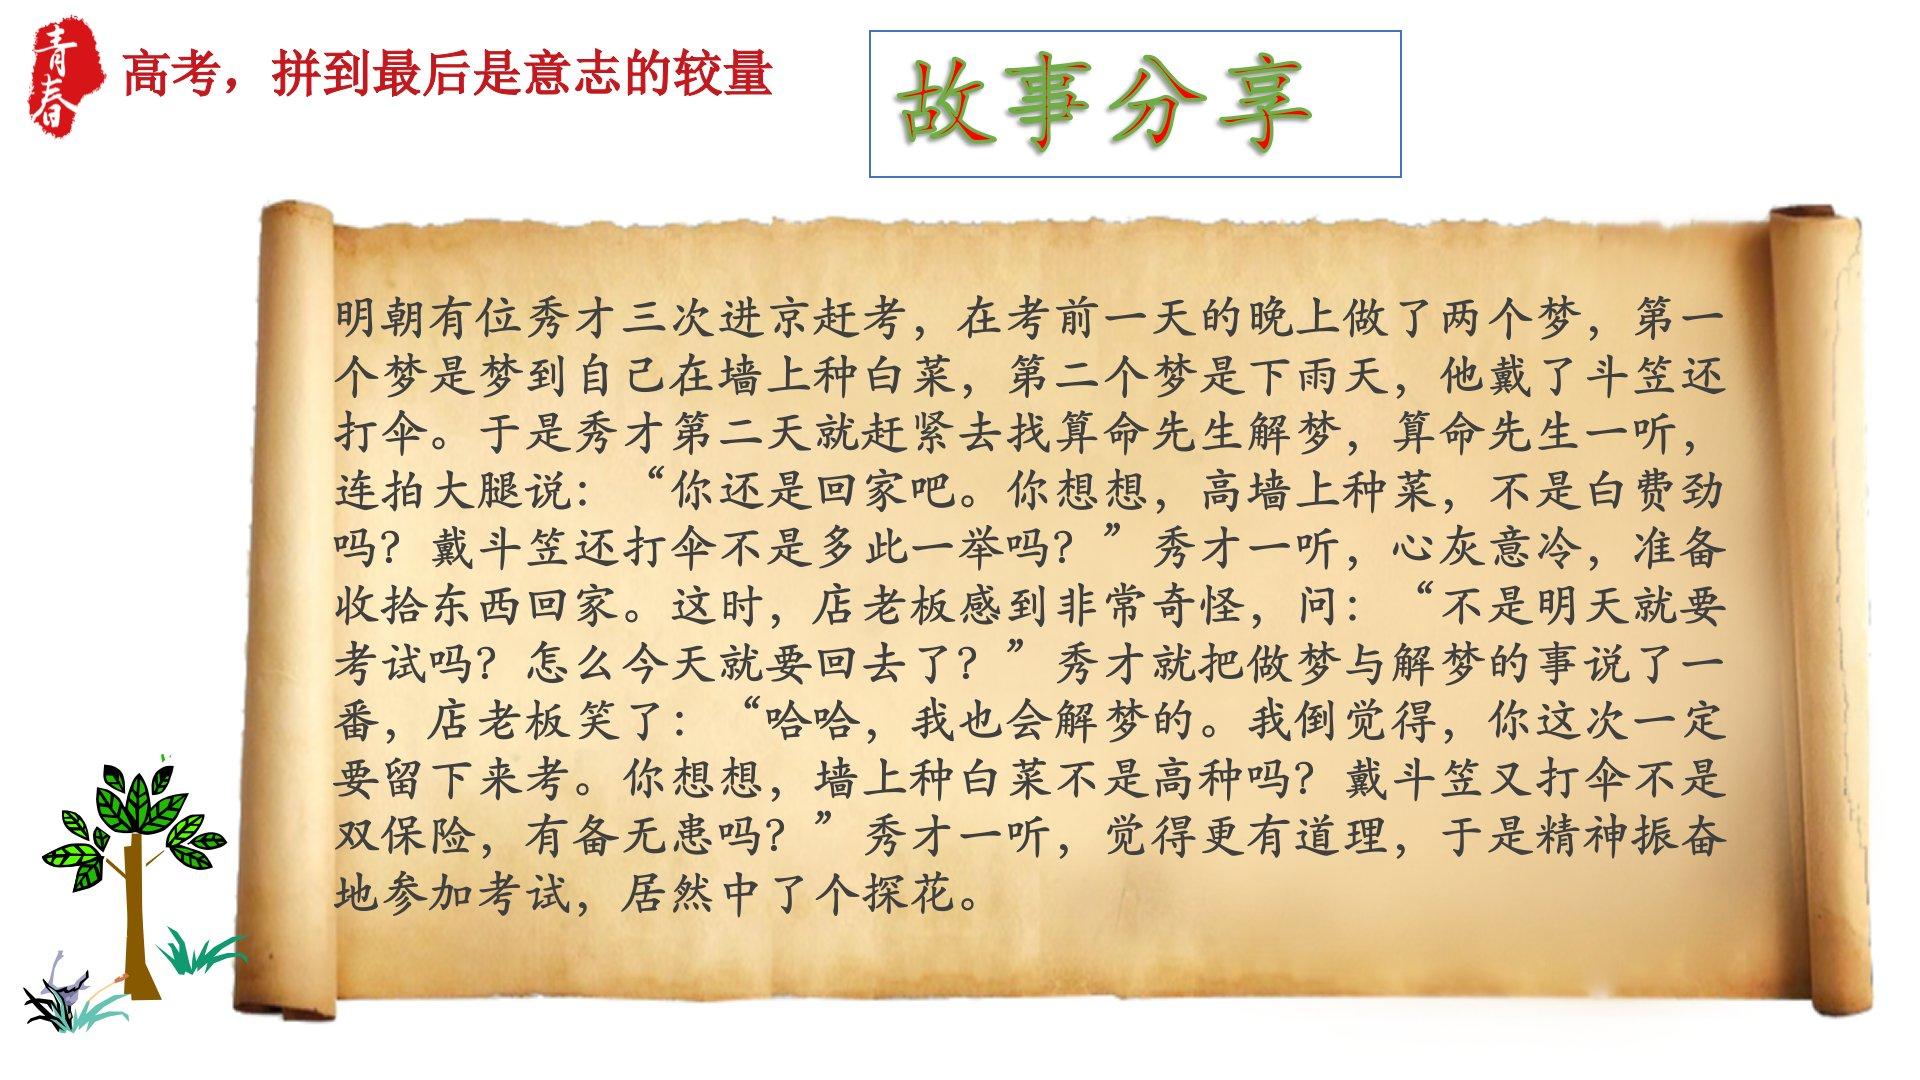 青春
高考，拼到最后是意志的较量
故事分享
明朝有位秀才三次进京赶考，在考前一天的晚上做了两个梦，第一
个梦是梦到自己在墙上种白菜，第二个梦是下雨天，他戴了斗笠还
打伞。于是秀才第二天就赶紧去找算命先生解梦，算命先生一听，
连拍大腿说：“你还是回家吧。你想想，高墙上种菜，不是白费劲
吗？戴斗笠还打伞不是多此一举吗？”秀才一听，心灰意冷，准备
收拾东西回家。这时，店老板感到非常奇怪，问：“不是明天就要
考试吗？怎么今天就要回去了？”秀才就把做梦与解梦的事说了一
番，店老板笑了：“哈哈，我也会解梦的。我倒觉得，你这次一定
要留下来考。你想想，墙上种白菜不是高种吗？戴斗笠又打伞不是
双保险，有备无患吗？”秀才一听，觉得更有道理，于是精神振奋
地参加考试，居然中了个探花。